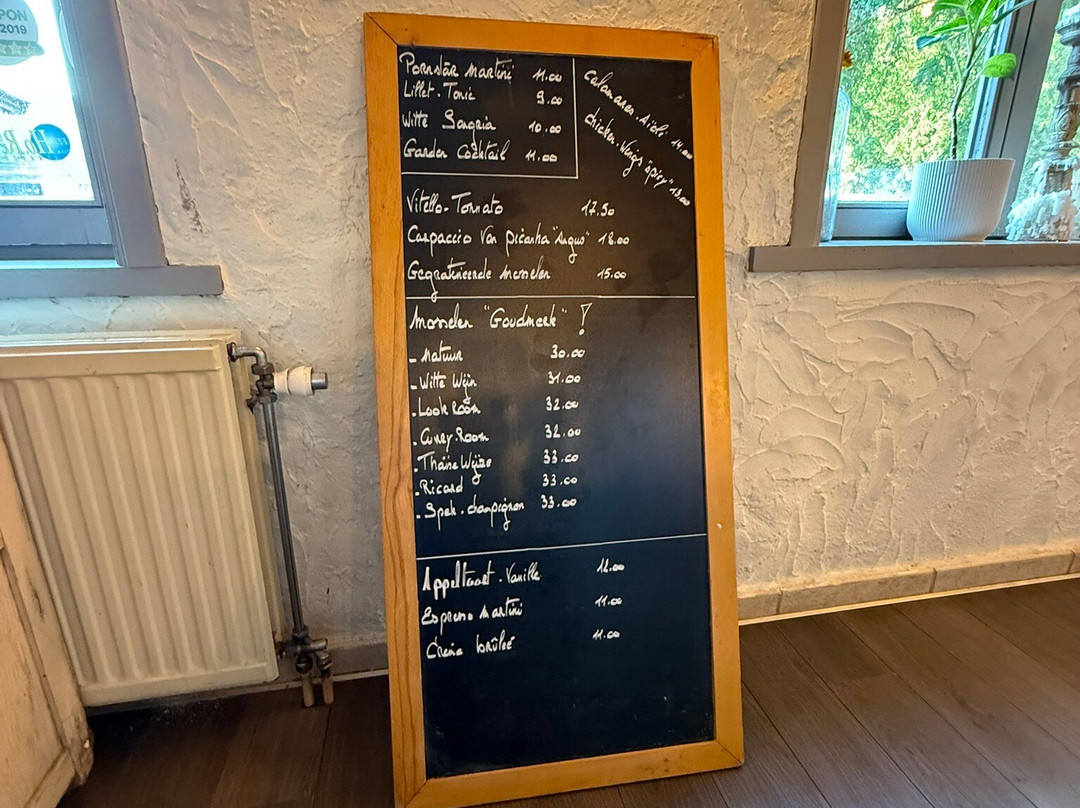 PON
2019
Pornstar Martini 11.00
Lillet-Tonic 9.00
Witte Sangria 10.00
Garden Cocktail 11.00
Calamares-Aioli 14.00
Chicken-Wings "spicy" 13.00
Vitello-Tonnato 17.50
Carpaccio Van picanha "Angus" 18.00
Gegratineerde mosselen 15.00
Mosselen "Goudmerk" !
- Natuur 30.00
- Witte Wijn 31.00
- Look Room 32.00
- Curry-Room 32.00
- Thaise Wijze 33.00
- Ricard 33.00
- Spek-champignon 33.00
Appeltaart-Vanille 12.00
Espresso Martini 11.00
Crème brûleé 11.00